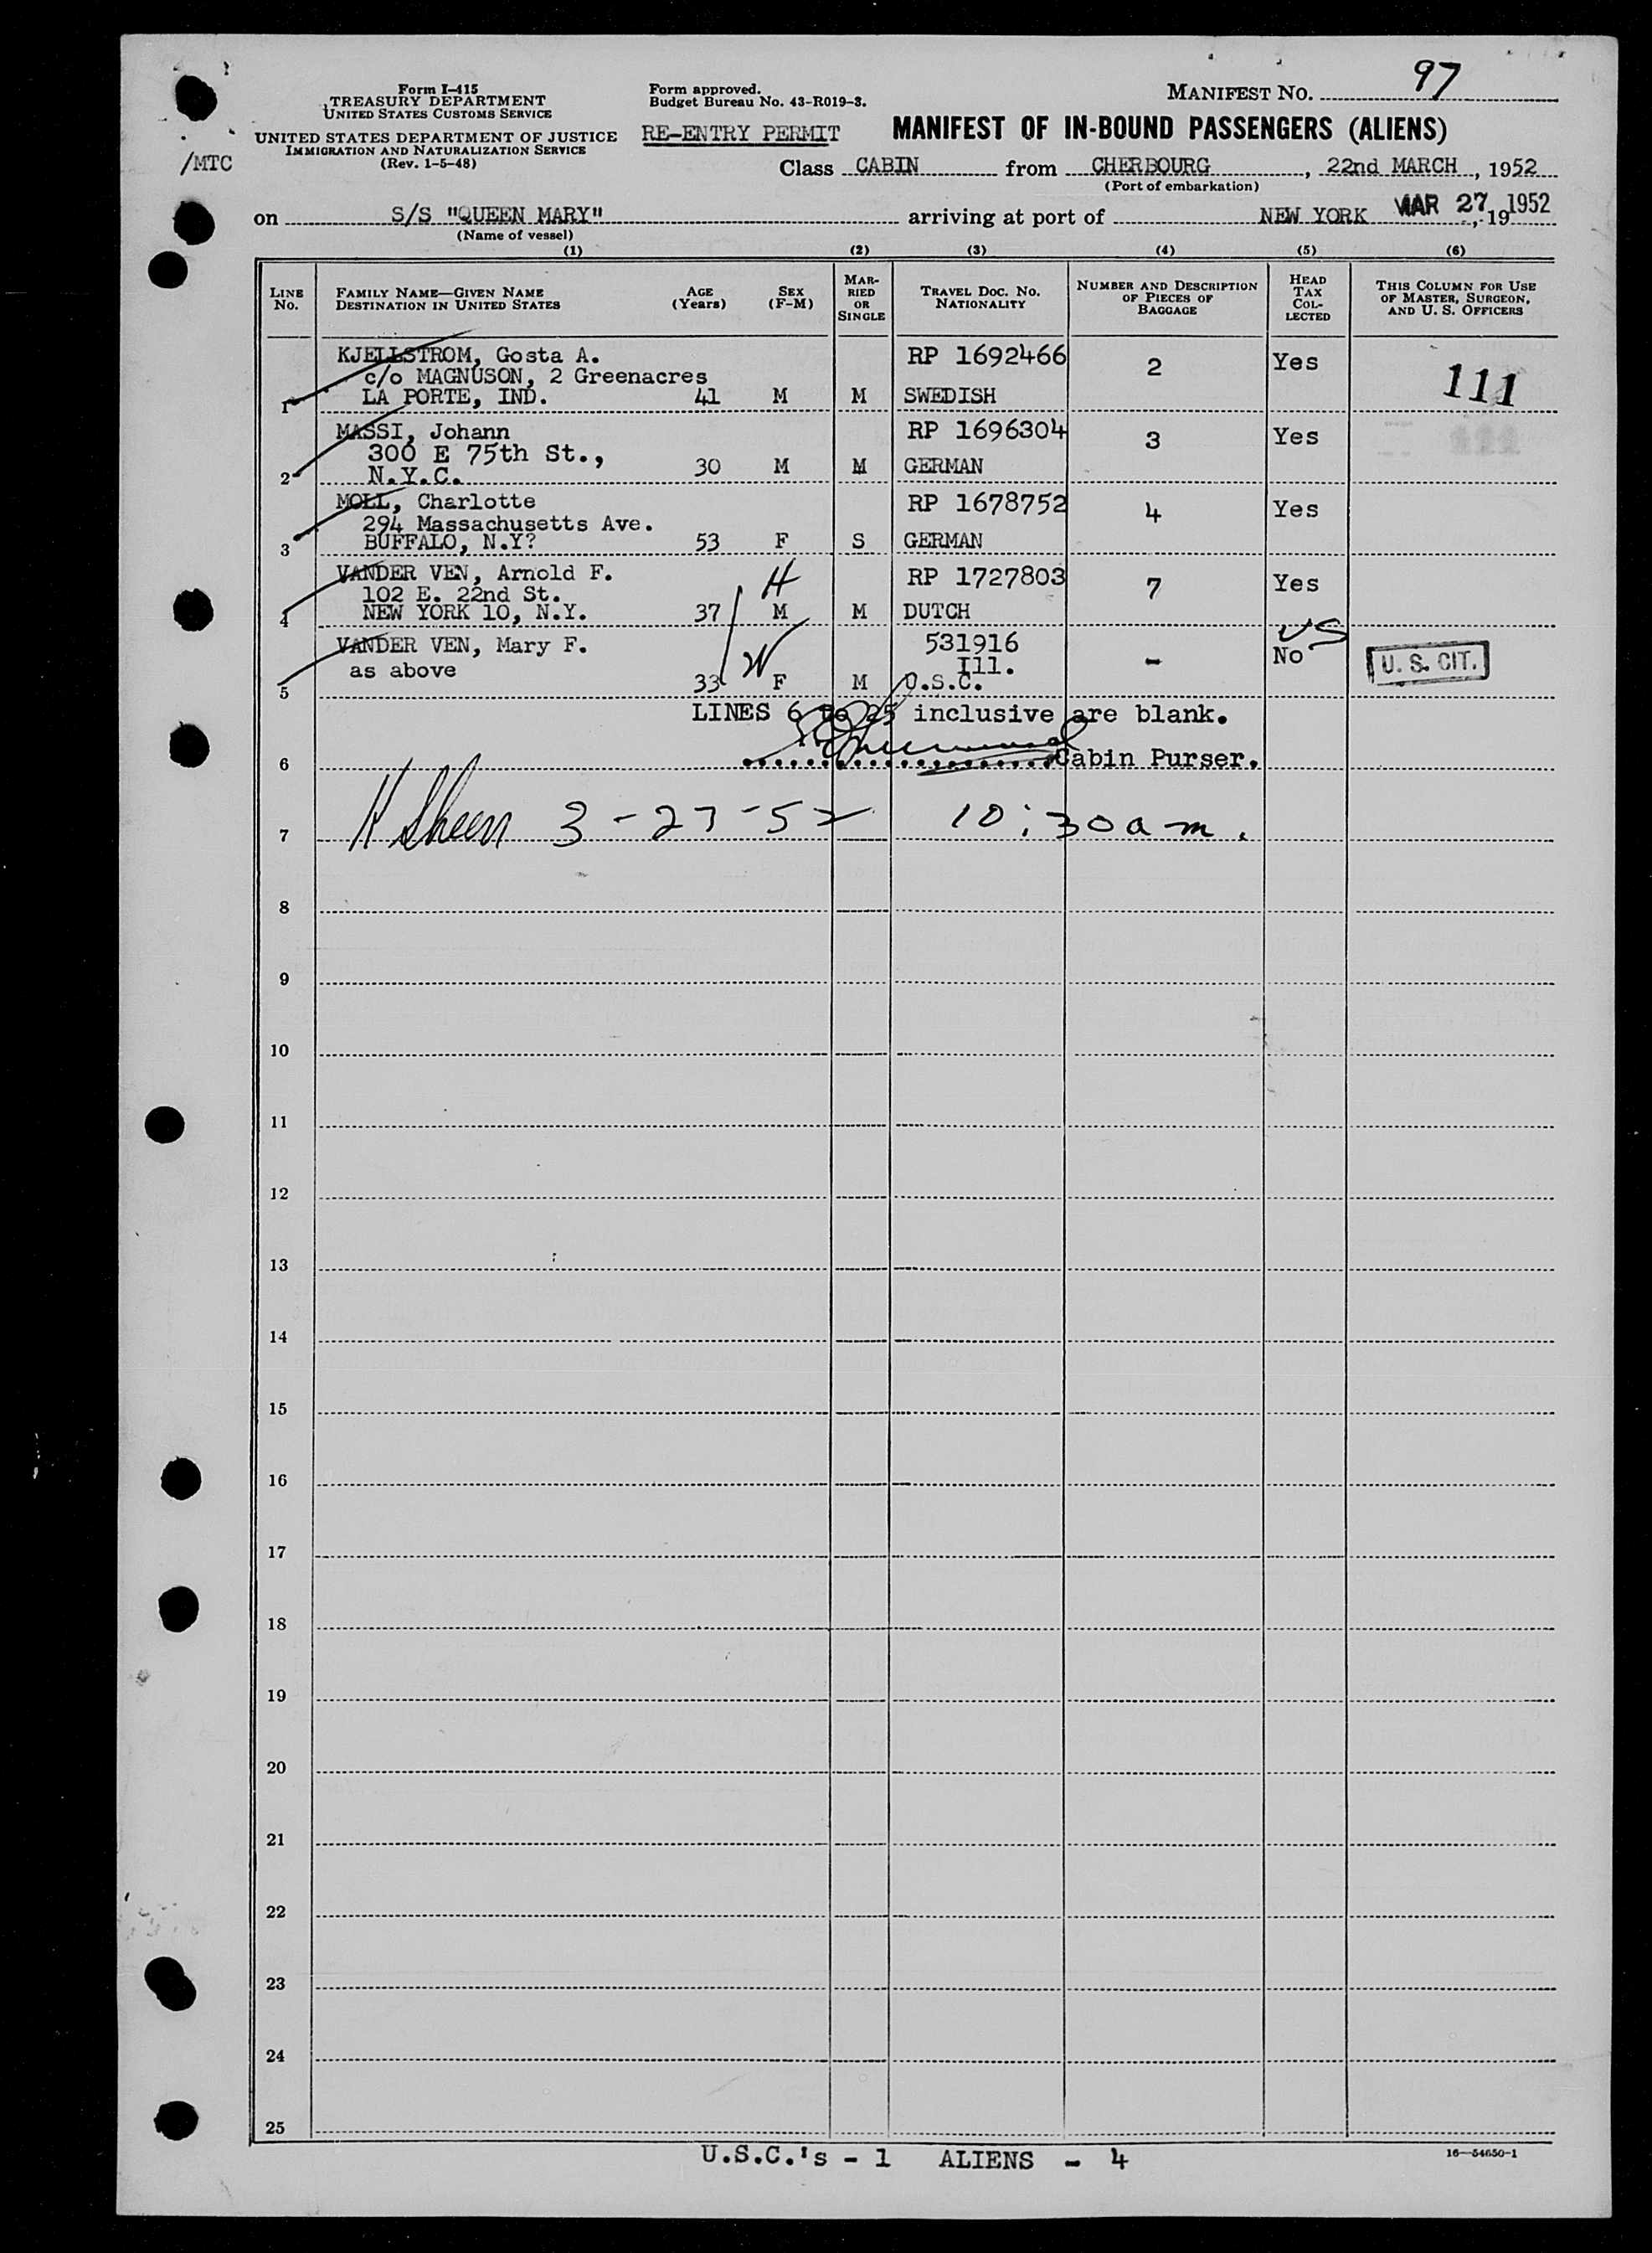 97
Form I-415
TREASURY DEPARTMENT
UNITED STATES CUSTOMS SERVICE
UNITED STATES DEPARTMENT OF JUSTICE
IMMIGRATION AND NATURALIZATION SERVICE
(Rev. 1-5-48)
/MTC
Form approved.
Budget Bureau No. 43-R019-3.
RE-ENTRY PERMIT
MANIFEST NO.
MANIFEST OF IN-BOUND PASSENGERS (ALIENS)
Class CABIN from CHERBOURG, 22nd MARCH, 1952
(Port of embarkation)
on S/S "QUEEN MARY" arriving at port of NEW YORK MAR 27, 19 1952
(Name of vessel)
(1) (2) (3) (4) (5) (6)
LINE No. FAMILY NAME—GIVEN NAME DESTINATION IN UNITED STATES AGE (Years) SEX (F-M) MARRIED OR SINGLE TRAVEL DOC. NO. NATIONALITY NUMBER AND DESCRIPTION OF PIECES OF BAGGAGE HEAD TAX COLLECTED THIS COLUMN FOR USE OF MASTER, SURGEON, AND U. S. OFFICERS
KJELLSTROM, Gosta A. RP 1692466 2 Yes 111
c/o MAGNUSON, 2 Greenacres
1 LA PORTE, IND. 41 M M SWEDISH
MASSI, Johann RP 1696304 3 Yes
300 E 75th St.,
2 N.Y.C. 30 M M GERMAN
MOLL, Charlotte RP 1678752 4 Yes
294 Massachusetts Ave.
3 BUFFALO, N.Y? 53 F S GERMAN
VANDER VEN, Arnold F. H RP 1727803 7 Yes
102 E. 22nd St.
4 NEW YORK 10, N.Y. 37 M M DUTCH
VANDER VEN, Mary F. W 531916 - US No U. S. CIT.
as above Ill.
5 33 F M U.S.C.
LINES 6 to 25 inclusive are blank.
6 Cabin Purser.
7 H Sheen 3-27-52 10:30 a-m.
8
9
10
11
12
13
14
15
16
17
18
19
20
21
22
23
24
25
U.S.C.'s - 1 ALIENS - 4
16—54650-1